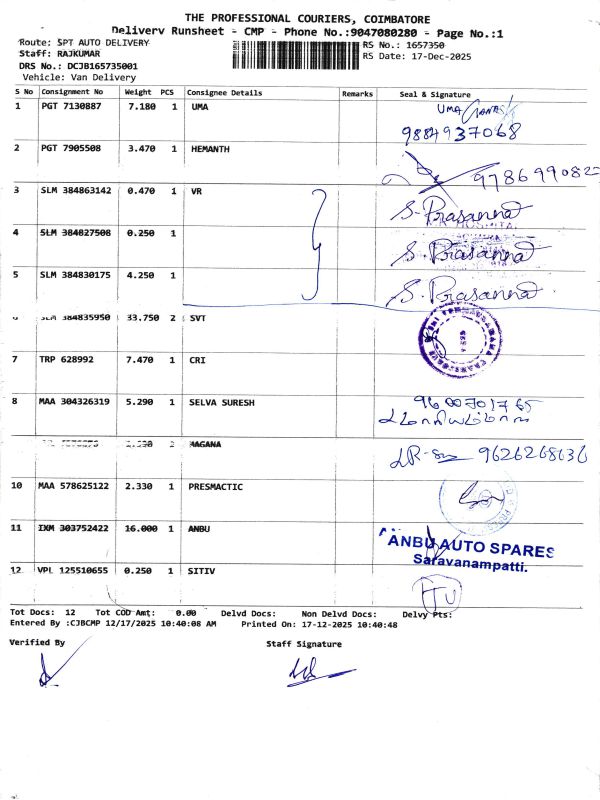 THE PROFESSIONAL COURIERS, COIMBATORE
Delivery Runsheet - CMP - Phone No.:9047080280 - Page No.:1
Route: SPT AUTO DELIVERY
RS No.: 1657350
Staff: RAJKUMAR
RS Date: 17-Dec-2025
DRS No.: DCJB165735001
Vehicle: Van Delivery
S No Consignment No Weight PCS Consignee Details Remarks Seal & Signature
1 PGT 7130887 7.180 1 UMA UMA
9884937068
2 PGT 7905508 3.470 1 HEMANTH
978699082
3 SLM 384863142 0.470 1 VR S. Prasanna
4 SLM 384827508 0.250 1 S. Prasanna
5 SLM 384830175 4.250 1 S. Prasanna
SLM 384835950 33.750 2 SVT
7 TRP 628992 7.470 1 CRI
8 MAA 304326319 5.290 1 SELVA SURESH 9600701765
MAGANA 9626268636
10 MAA 578625122 2.330 1 PRESMACTIC
11 IXM 303752422 16.000 1 ANBU
ANBU AUTO SPARES
Saravanampatti.
12 VPL 125510655 0.250 1 SITIV
Tot Docs: 12 Tot COD Amt: 0.00 Delvd Docs: Non Delvd Docs: Delvy Pts:
Entered By :CJBCMP 12/17/2025 10:40:08 AM Printed On: 17-12-2025 10:40:48
Verified By Staff Signature